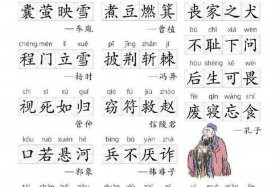 囊萤映雪 煮豆燃萁 丧家之犬
—车胤 —曹植 bù chǐ xià wèn
chéng mén lì xuě pī jīng zhǎn jí 不耻下问
程门立雪 披荆斩棘 hòu shēng kě wèi
—杨时 —冯异 后生可畏
shì sǐ rú guī qiè fú jiù zhào fèi qǐn wàng shí
视死如归 窃符救赵 废寝忘食
管仲 信陵君 —孔子
kǒu ruò xuán hé bīng bù yàn zhà
口若悬河 兵不厌诈
—郭象 —韩非子